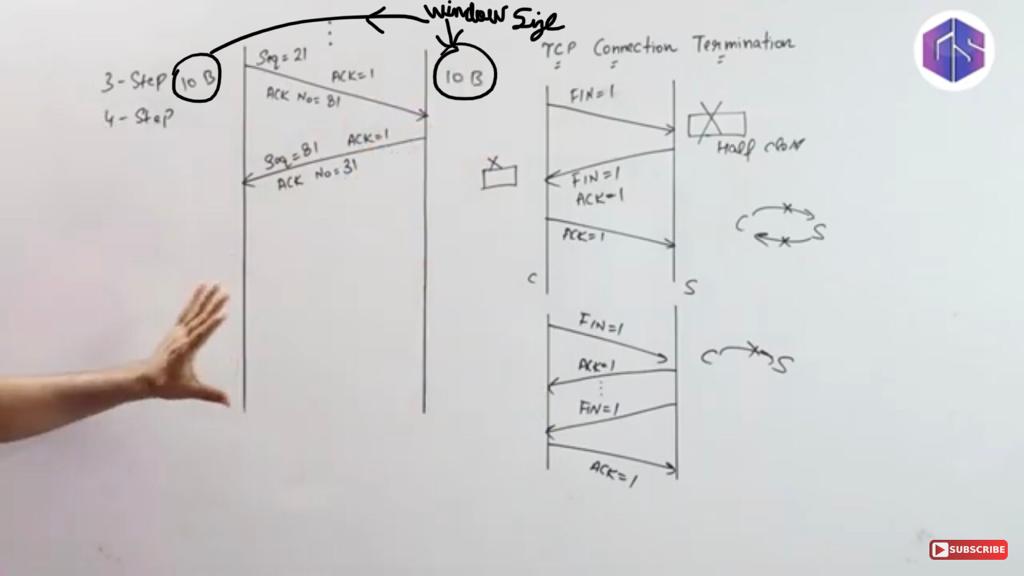 window Size
3-Step 10 B
4-Step
Seq=21
ACK=1
ACK No=81
10 B
ACK=1
Seq=81
ACK No=31
TCP Connection Termination
FIN=1
Half close
FIN=1
ACK=1
ACK=1
C S
C S
FIN=1
ACK=1
FIN=1
ACK=1
C S
SUBSCRIBE